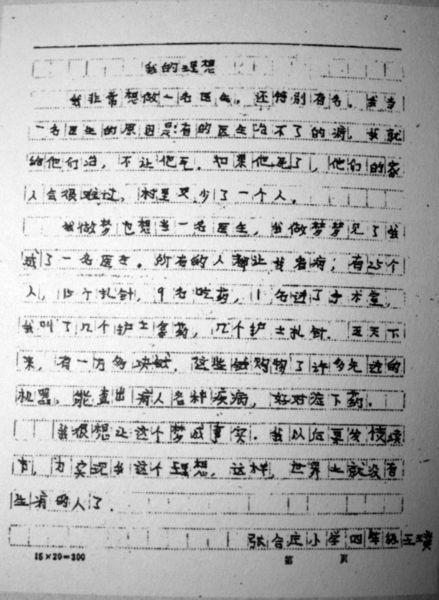 我的理想
我非常想做一名医生，还特别有名。我当
一名医生的原因是:有的医生治不了的病，我就
给他们治，不让他死。如果他死了，他们的家
人会很难过，村里又少了一个人。
我做梦也想当一名医生，我做梦梦见了我
成了一名医生。所有的人都让我看病，有25个
人，15个扎针，9名吃药，1名进了手术室，
我叫了几个护士拿药，几个护士扎针。五天下
来，有一万多块钱，这些钱购买了许多先进的
机器，能查出病人各种疾病，好对症下药。
我很想让这个梦成事实。我以后要发愤读
书，为实现我这个理想，这样，世界上就没有
生病的人了。
张合庄小学四年级王
15×20=300 第 页